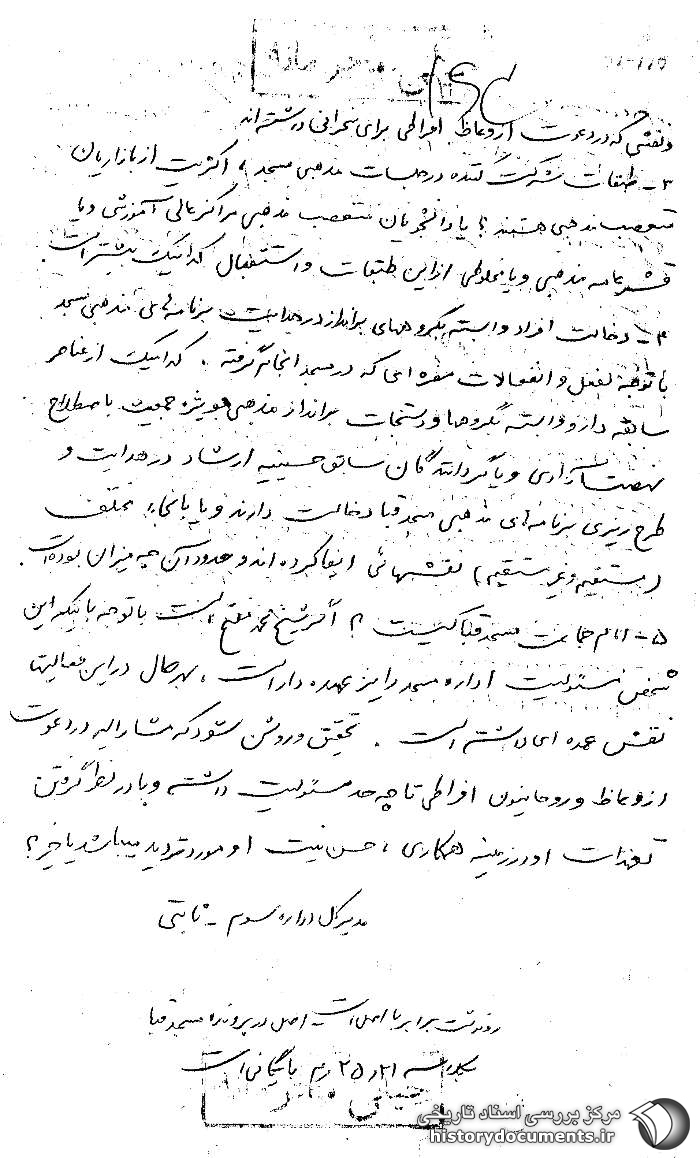 و نقشی که در دعوت از وعاظ افراطی برای سخرانی داشته‌اند
۳- طبقات شرکت کننده در جلسات مذهبی مسجد، اکثریت از بازاریان
متعصب مذهبی هستند؟ یا دانشجویان متعصب مذهبی مراکز عالی آموزشی و یا
قشر عامه مذهبی و یا مخلوطی از این طبقات و استقبال کدامیک بیشتر است.
۴- دخالت افراد وابسته بگروههای برانداز در هدایت برنامه‌های مذهبی مسجد
با توجه بفعل و انفعالات مضره‌ای که در مسجد انجام گرفته. کدامیک از عناصر
سابقه‌دار و وابسته بگروهها و دستجات برانداز مذهبی بویژه جمعیت باصطلاح
نهضت آزادی و یا گردانندگان سابق حسینیه ارشاد در هدایت و
طرح ریزی برنامه‌های مذهبی مسجد قبا دخالت دارند و یا بانحاء مختلف
(مستقیم و غیر مستقیم) نقشهائی ایفا کرده‌اند و حدود آن چه میزان بوده است.
۵- امام جماعت مسجد قبا کیست؟ اگر شیخ محمد مفتح است با توجه باینکه این
شخص مسئولیت اداره مسجد را نیز عهده‌دار است، بهر حال در این فعالیتها
نقش عمده‌ای داشته است. تحقیق و روشن شود که مشارالیه در دعوت
از وعاظ و روحانیون افراطی تا چه حد مسئولیت داشته و با در نظر گرفتن
تعهدات او در زمینه همکاری، حسن نیت او مورد تردید میباشد یا خیر؟
مدیر کل اداره سوم - ثابتی
رونوشت برابر با اصل است اصل در پرونده مسجد قبا
بکلاسه ۲۵۰۲۱ بایگانی است
مرکز بررسی اسناد تاریخی
historydocuments.ir